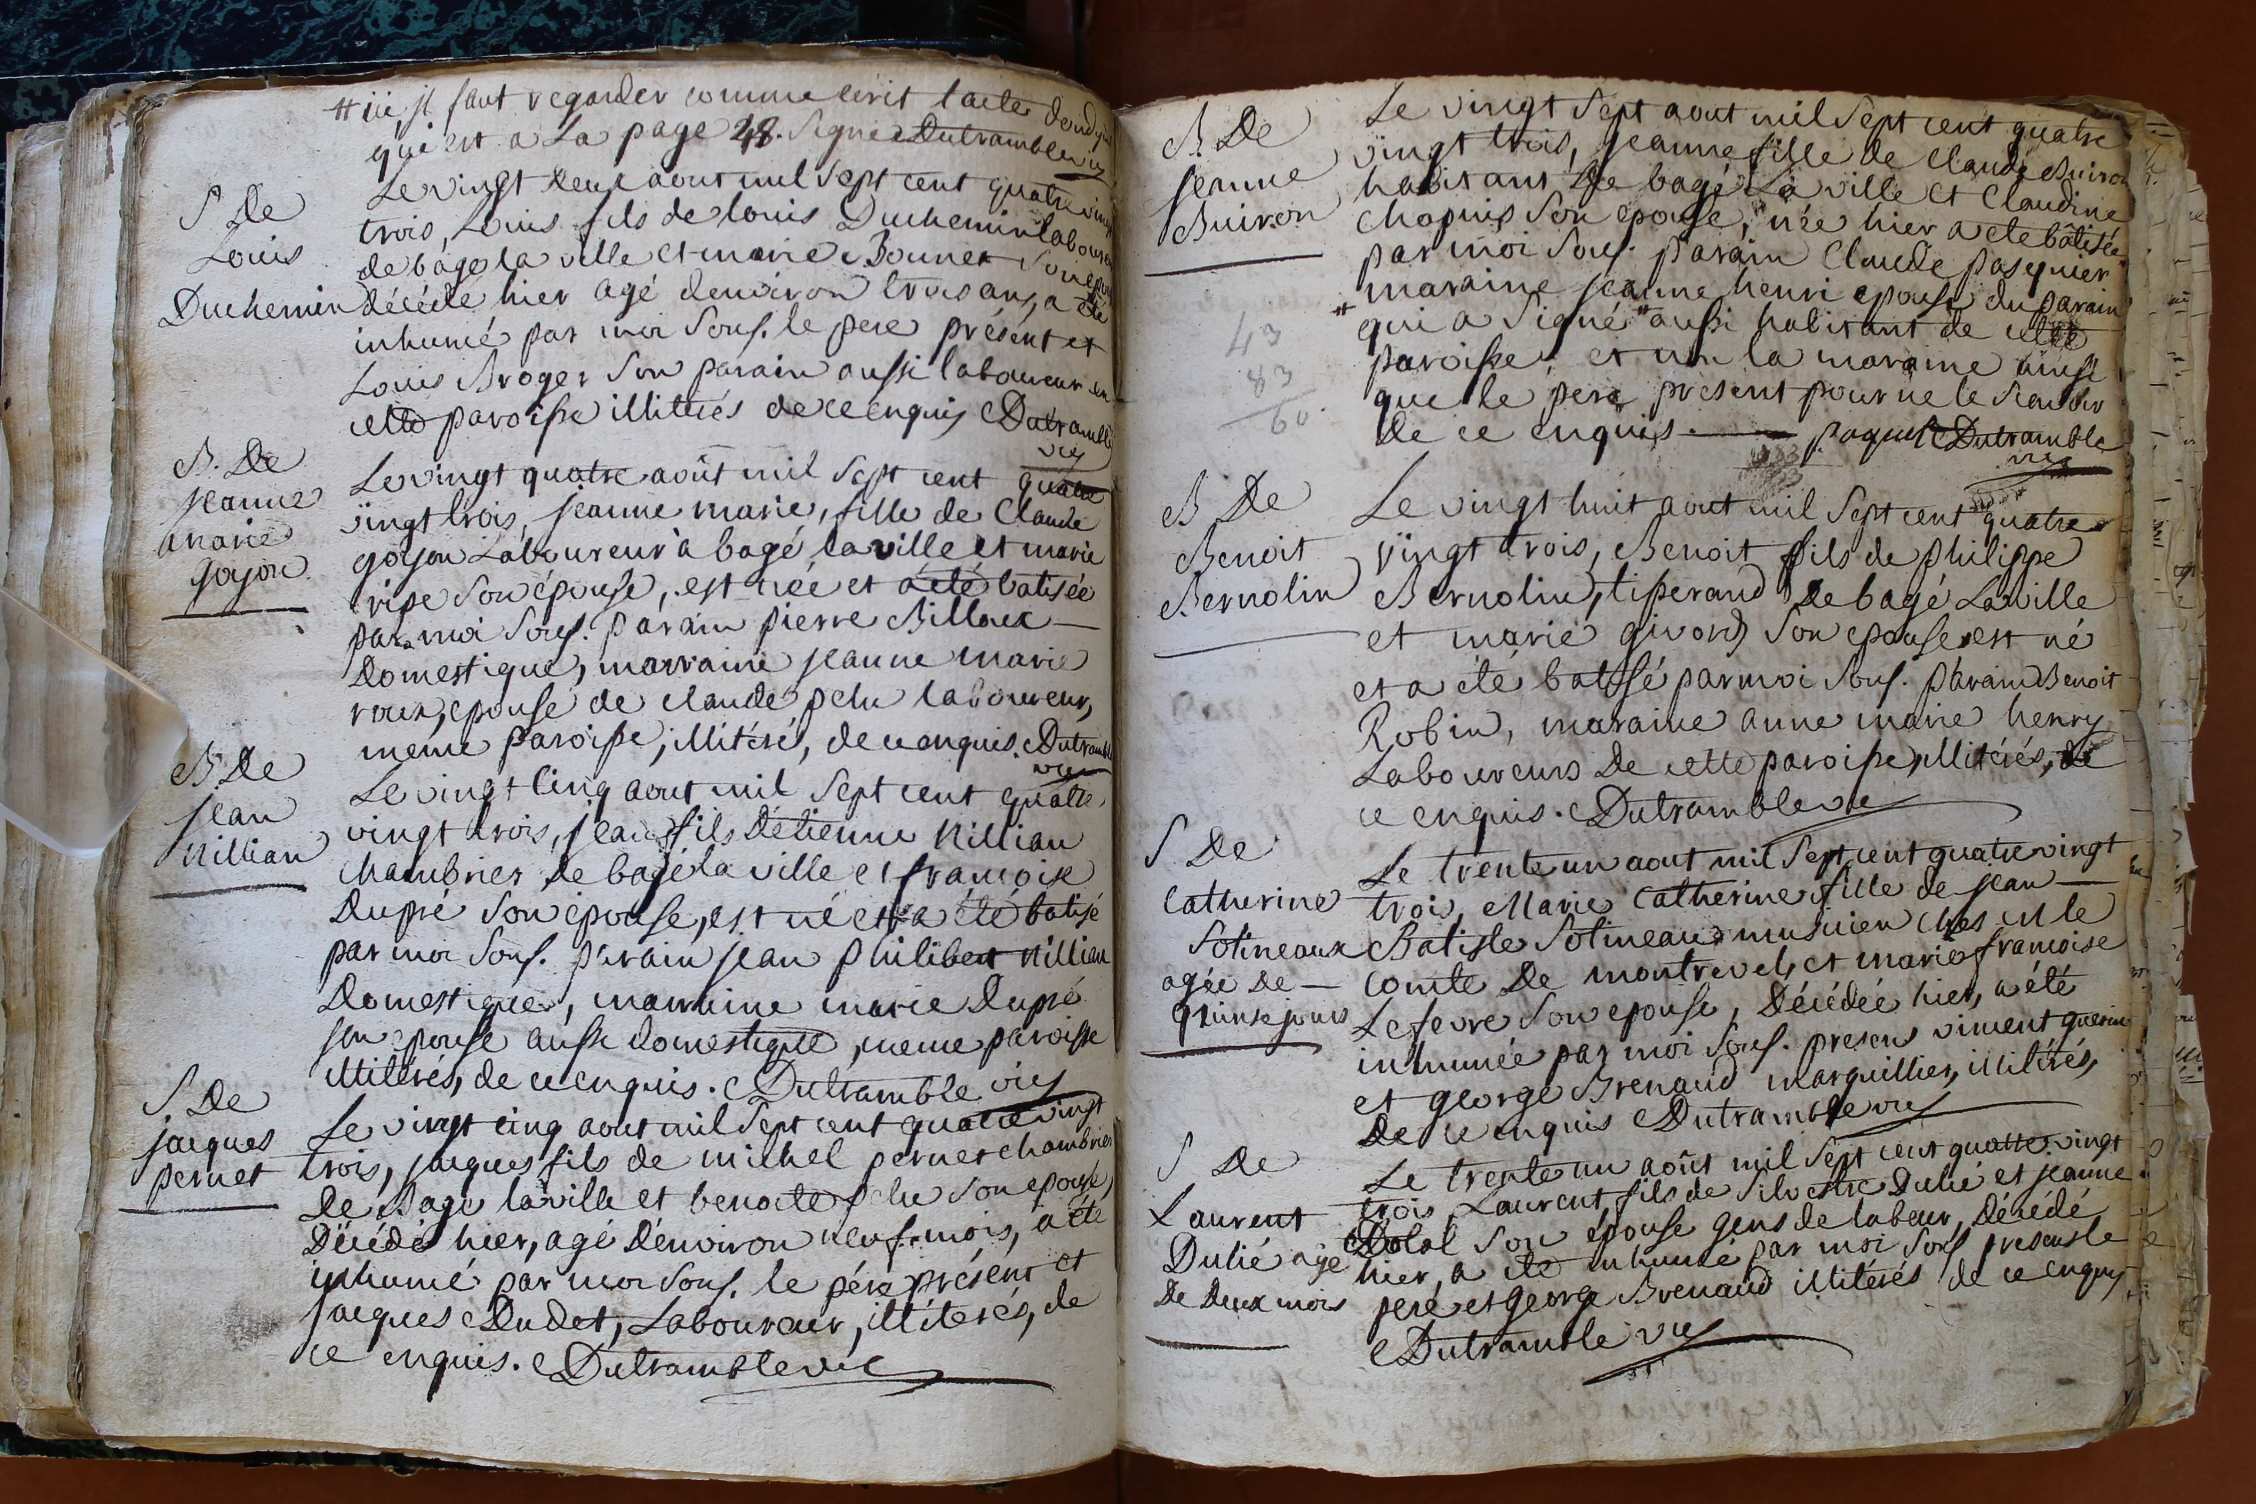 # ici, il faut regarder comme écrit l'acte
qui est a La page 28. Signé Dutramble vic
S De
Louis
Duchemin
Le vingt deux aout mil sept cent quatre vingt
trois, Louis fils de louis Duchemin laboureur
de bagé la ville et marie Bonnet Son epouse
décéde hier agé denviron trois ans, a été
inhumé par moi Sous. le pere présent et
Louis Broger Son parain aussi laboureur en
cette paroisse illiterés de ce enquis Dutramble
vic
B. De
jeanne
marie
goyon
Le vingt quatre août mil Sept cent quatre
vingt trois, jeanne marie, fille de Claude
goyon Laboureur à bagé la ville et marie
ripe Son épouse, est née et a été batisée
par moi Sous. parain pierre Billoux
Domestique, marraine jeanne marie
roux, epouse de claude pelu laboureur,
meme paroisse, illitérés, de ce enquis. Dutramble
vic
B. De
jean
Nillian
Le vingt cinq aout mil Sept cent quatre
vingt trois, jean fils D'étienne Nillian
chambrier De bagé la ville et françoise
Dupré Son épouse, est né et a été batisé
par moi Sous. parain jean philibert Nillian
Domestique, marraine marie Dupré
son epouse aussi domestique, meme paroisse
illitérés, de ce enquis. Dutramble vic
S. De
jacques
pernet
Le vingt cinq aout mil Sept cent quatre vingt
trois, jacques fils de michel pernet chambrier
De Bagé la ville et benoite pelu Son epouse,
Décédé hier, agé D'environ neuf mois, a été
inhumé par moi Sous. le père présent et
jacques Dudet, Laboureur, illiterés, de
ce enquis. Dutramble vic
B. De
jeanne
Buiron
Le vingt Sept aout mil Sept cent quatre
vingt trois, jeanne fille de claude Buiron
habitant De bagé La ville et Claudine
chapuis Son epouse, née hier a ete bâtisée
par moi Sous. parain Claude pasquier
maraine jeanne henri epouse du parain
# qui a Signé # aussi habitant de cette
paroisse, et non la maraine ainsi
que le pere present pour ne le Scavoir
De ce enquis. paquier Dutramble
vic
43
83
60.
B De
Benoit
Bernolin
Le vingt huit aout mil Sept cent quatre
vingt trois, Benoit fils de philippe
Bernolin, tiperand De bagé La ville
et marie givord Son epouse est né
et a été batisé par moi Sous. parain Benoit
Robin, maraine anne marie henry
Laboureurs De cette paroisse, illitérés, de
ce enquis. Dutramble vic
S De
Catherine
Solineaux
agée De
quinse jours
Le trente un aout mil Sept cent quatre vingt
trois, Marie Catherine fille de jean
Batiste Solineaux musicien chés M le
comte De montrevel, et marie françoise
Lefevre Son epouse, Décédée hier, a été
inhumée par moi Sous. presens vincent guerin
et george Brenaud marguillier, illitérés,
De ce enquis Dutramble vic
S De
Laurent
Dulié agé
De Deux mois
Le trente un août mil Sept cent quatre vingt
trois Laurent, fils de silvestre Dulié et jeanne
Dolol Son épouse gens de labeur, Décédé
hier, a été inhumé par moi Sous presens le
pere et george Brenaud illitérés de ce enquis
Dutramble vic